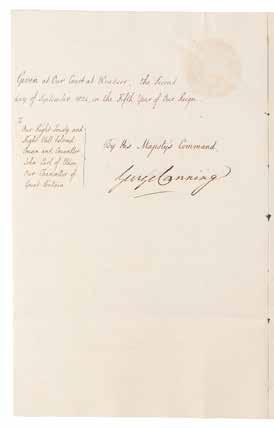 Given at Our Court at Windsor, the Second
day of September 1824, in the Fifth Year of Our Reign.
To
Our Right Trusty and
Right Well beloved
Cousin and Councillor
John Earl of Eldon
Our Chancellor of
Great Britain
By His Majesty's Command.
George Canning